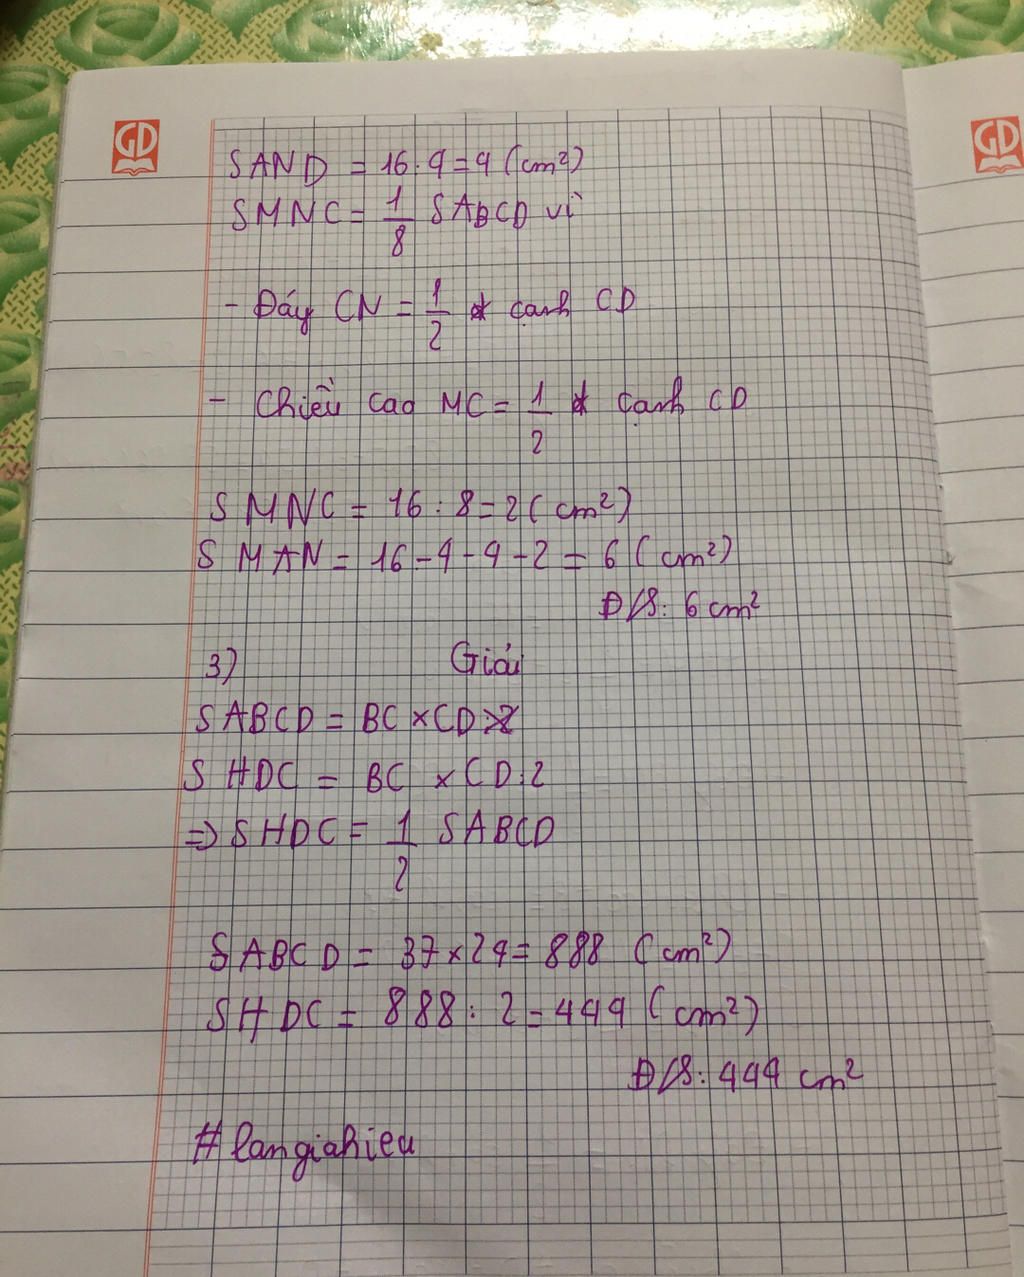 GD
GD
SAND = 16 : 4 = 4 (cm²)
SMNC = 1/8 SABCD vì
- Đáy CN = 1/2 cạnh CD
- Chiều cao MC = 1/2 cạnh CD
SMNC = 16 : 8 = 2 (cm²)
SMAN = 16 - 4 - 4 - 2 = 6 (cm²)
Đ/S: 6 cm²
3) Giải
SABCD = BC × CD
SHDC = BC × CD : 2
=> SHDC = 1/2 SABCD
SABCD = 37 × 24 = 888 (cm²)
SHDC = 888 : 2 = 444 (cm²)
Đ/S: 444 cm²
#langiahieu